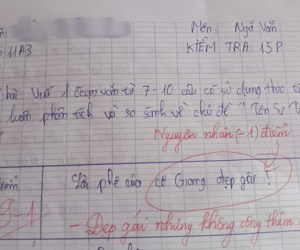 Môn: Ngữ Văn
11A3
KIỂM TRA 15P
Viết 1 đoạn văn từ 7-10 câu có sử dụng thao
luận phân tích và so sánh về chủ đề "Tôn Sư
Nguyên nhân (-1) điểm
Lời phê của cô Giang đẹp gái!
9-1
- Đẹp gái nhưng không cộng thêm